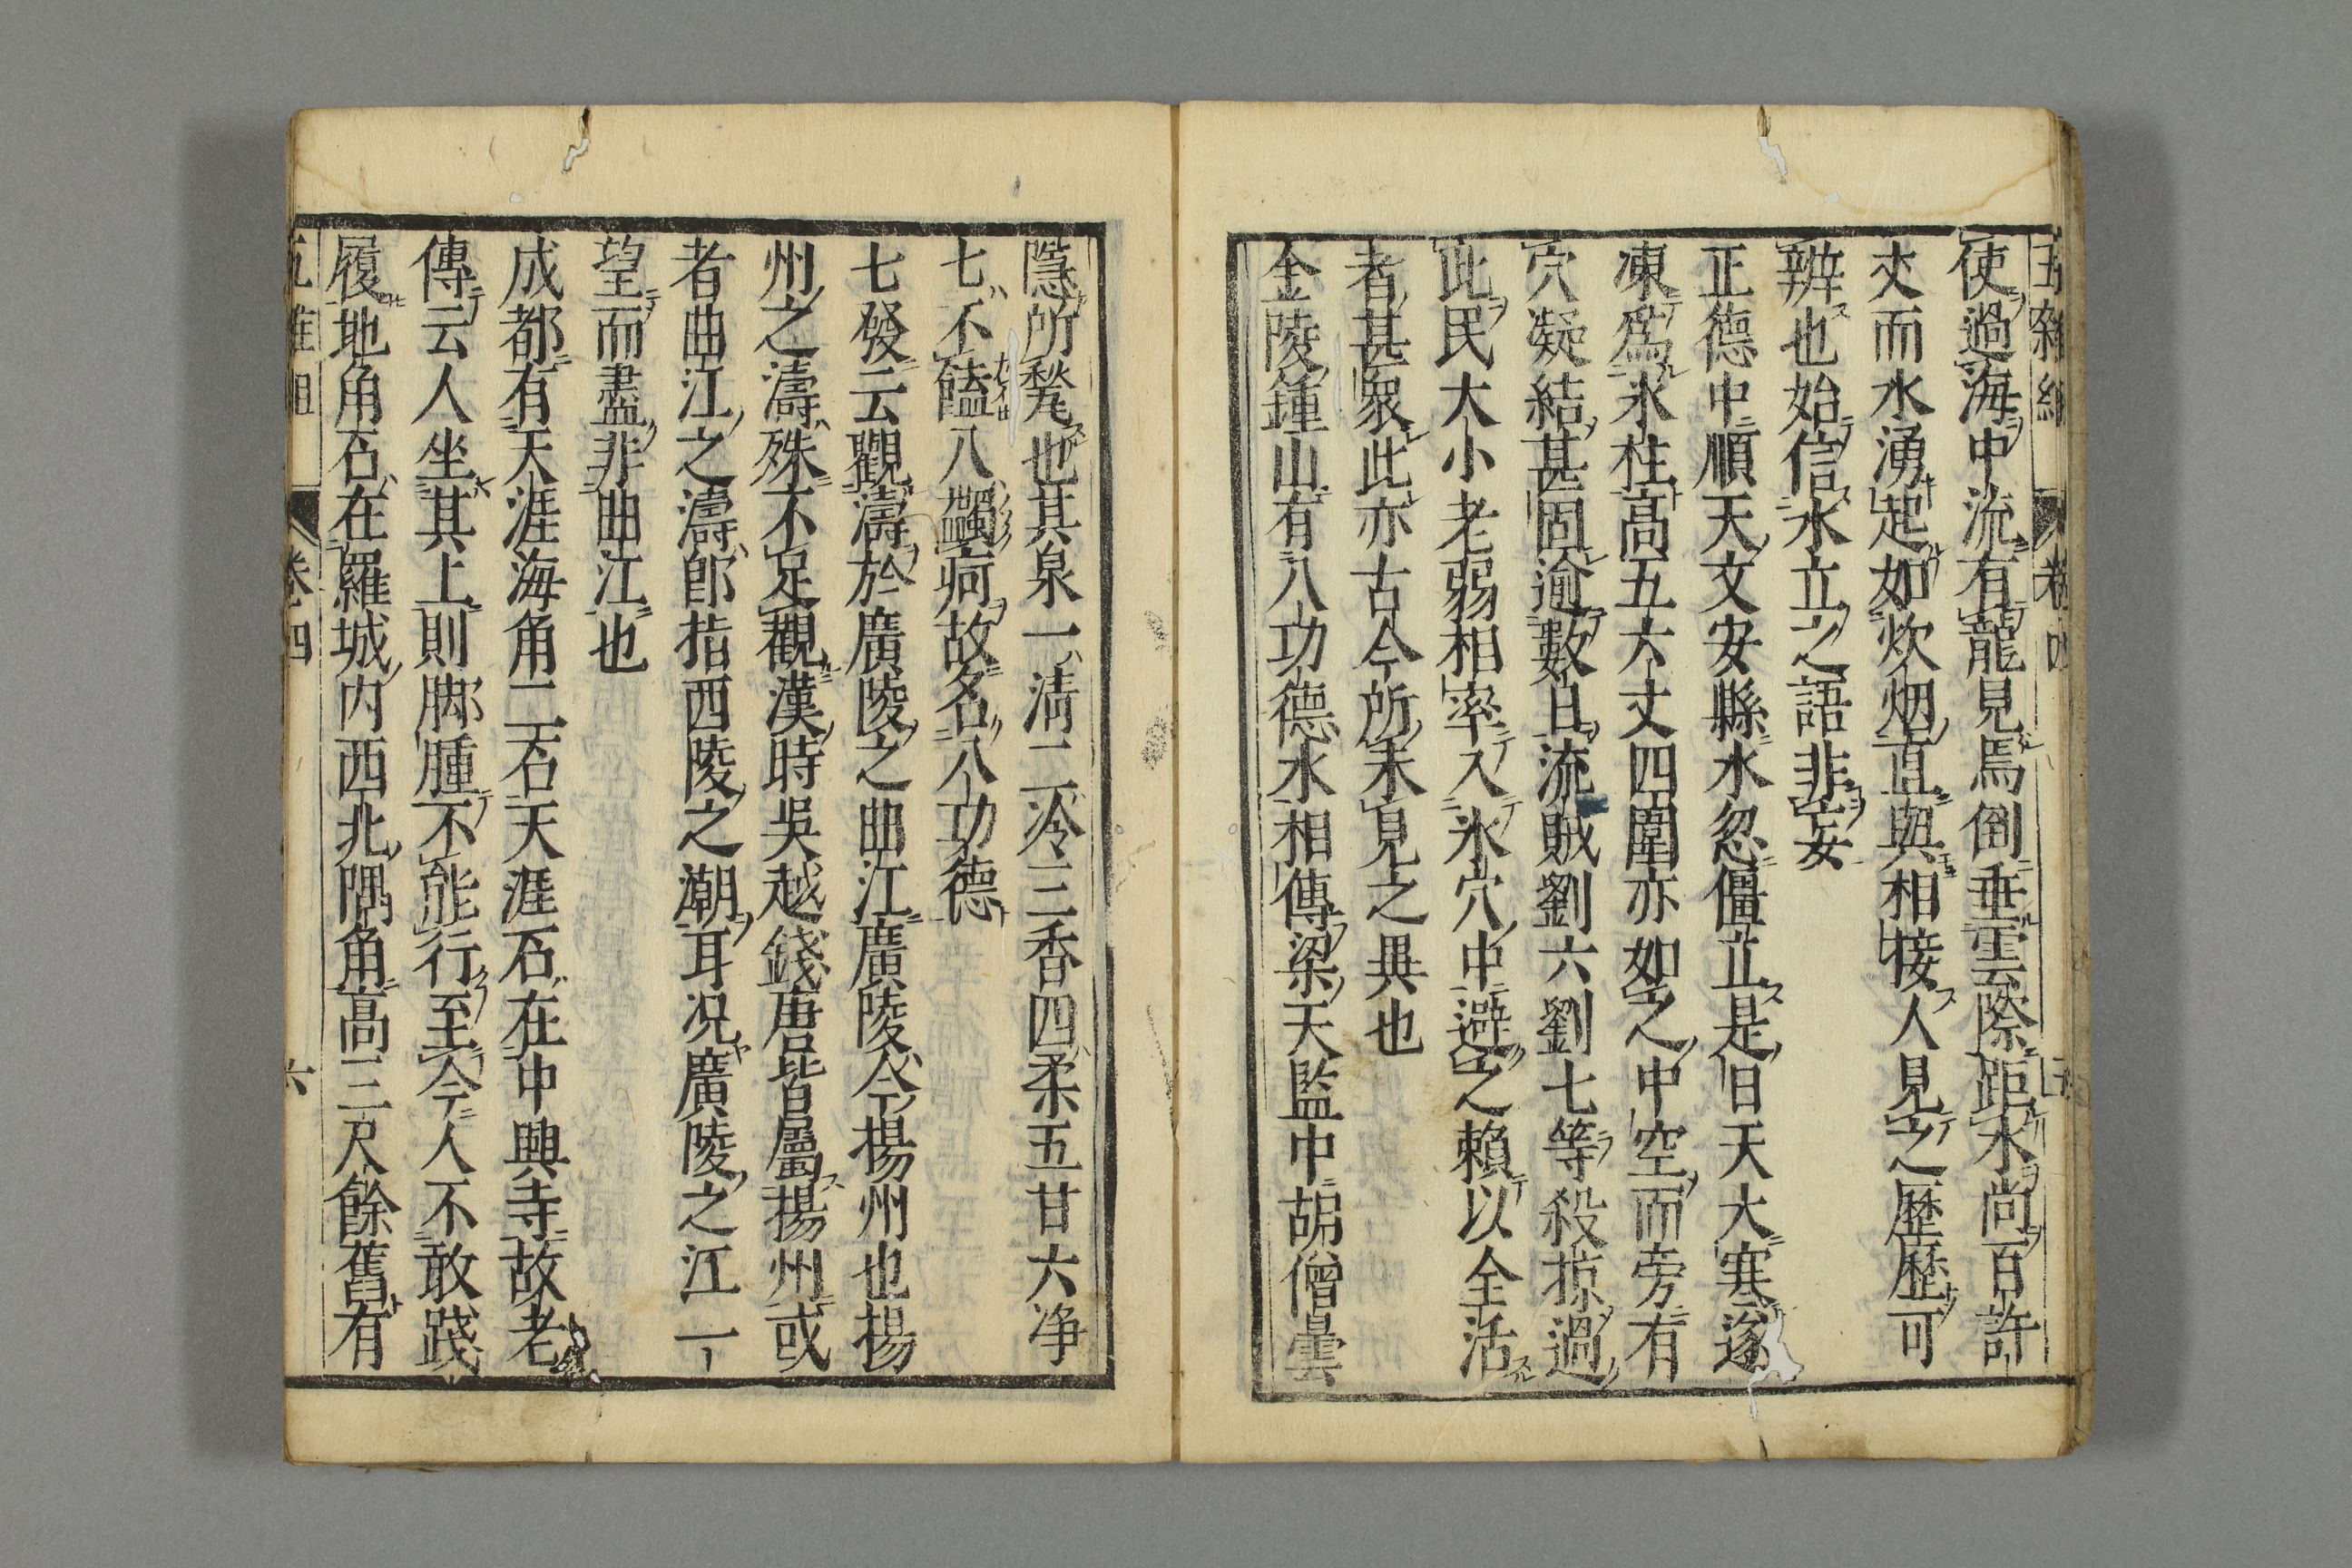 五雜組　卷四
使過海中流有龍見焉倒垂雲際距水尚百許
丈而水湧起如炊烟直與相接人見之歷歷可
辨也始信水立之語非妄
正德中順天文安縣水忽僵立是日天大寒遂
凍爲氷柱高五六丈四圍亦如之中空而旁有
穴凝結甚固逾數日流賊劉六劉七等殺掠過
此民大小老弱相率入氷穴中避之賴以全活
者甚衆此亦古今所未見之異也
金陵鍾山有八功德水相傳梁天監中胡僧曇
隱所㲉也其泉一清二冷三香四柔五甘六净
七不饐八蠲疴故名八功德
七發云觀濤於廣陵之曲江廣陵今揚州也揚
州之濤殊不足觀漢時吳越錢唐皆屬揚州或
者曲江之濤卽指西陵之潮耳况廣陵之江一
望而盡非曲江也
成都有天涯海角二石天涯石在中興寺故老
傳云人坐其上則脚腫不能行至今人不敢踐
履地角石在羅城内西北隅角高三尺餘舊有
五雜組　卷四　六